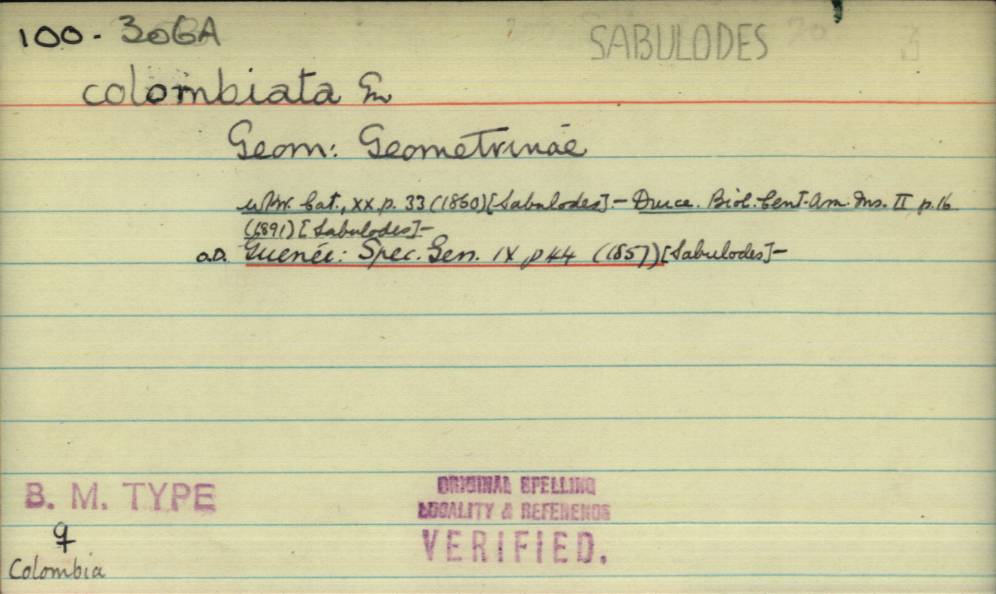 100 - 306A
SABULODES
colombiata Gn
Geom: Geometrinae
Wkr. Cat., xx, p. 33 (1860) [Sabulodes] – Druce. Biol. Cent-Am. Ins. II p. 16
(1891) [Sabulodes] –
o.D. Guenée: Spec. Gen. IX p 44 (1857) [Sabulodes] –
B. M. TYPE
ORIGINAL SPELLING
LOCALITY & REFERENCE
VERIFIED.
♀
Colombia